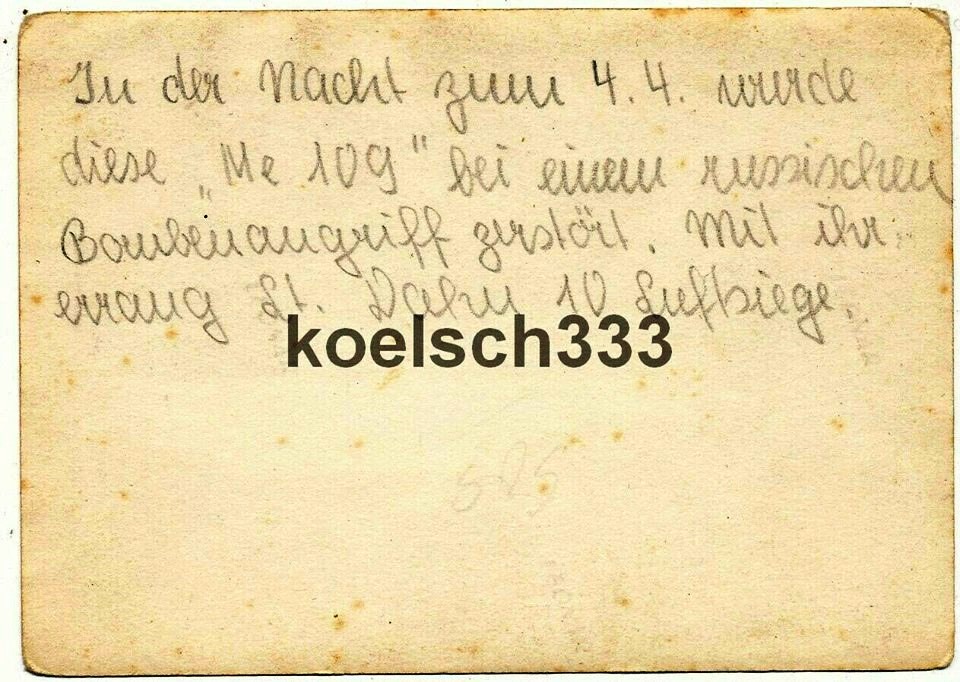 In der Nacht zum 4.4. wurde
diese „Me 109" bei einem russischen
Bombenangriff zerstört. Mit ihr
errang Lt. Dahn 10 Luftsiege.
koelsch333
525